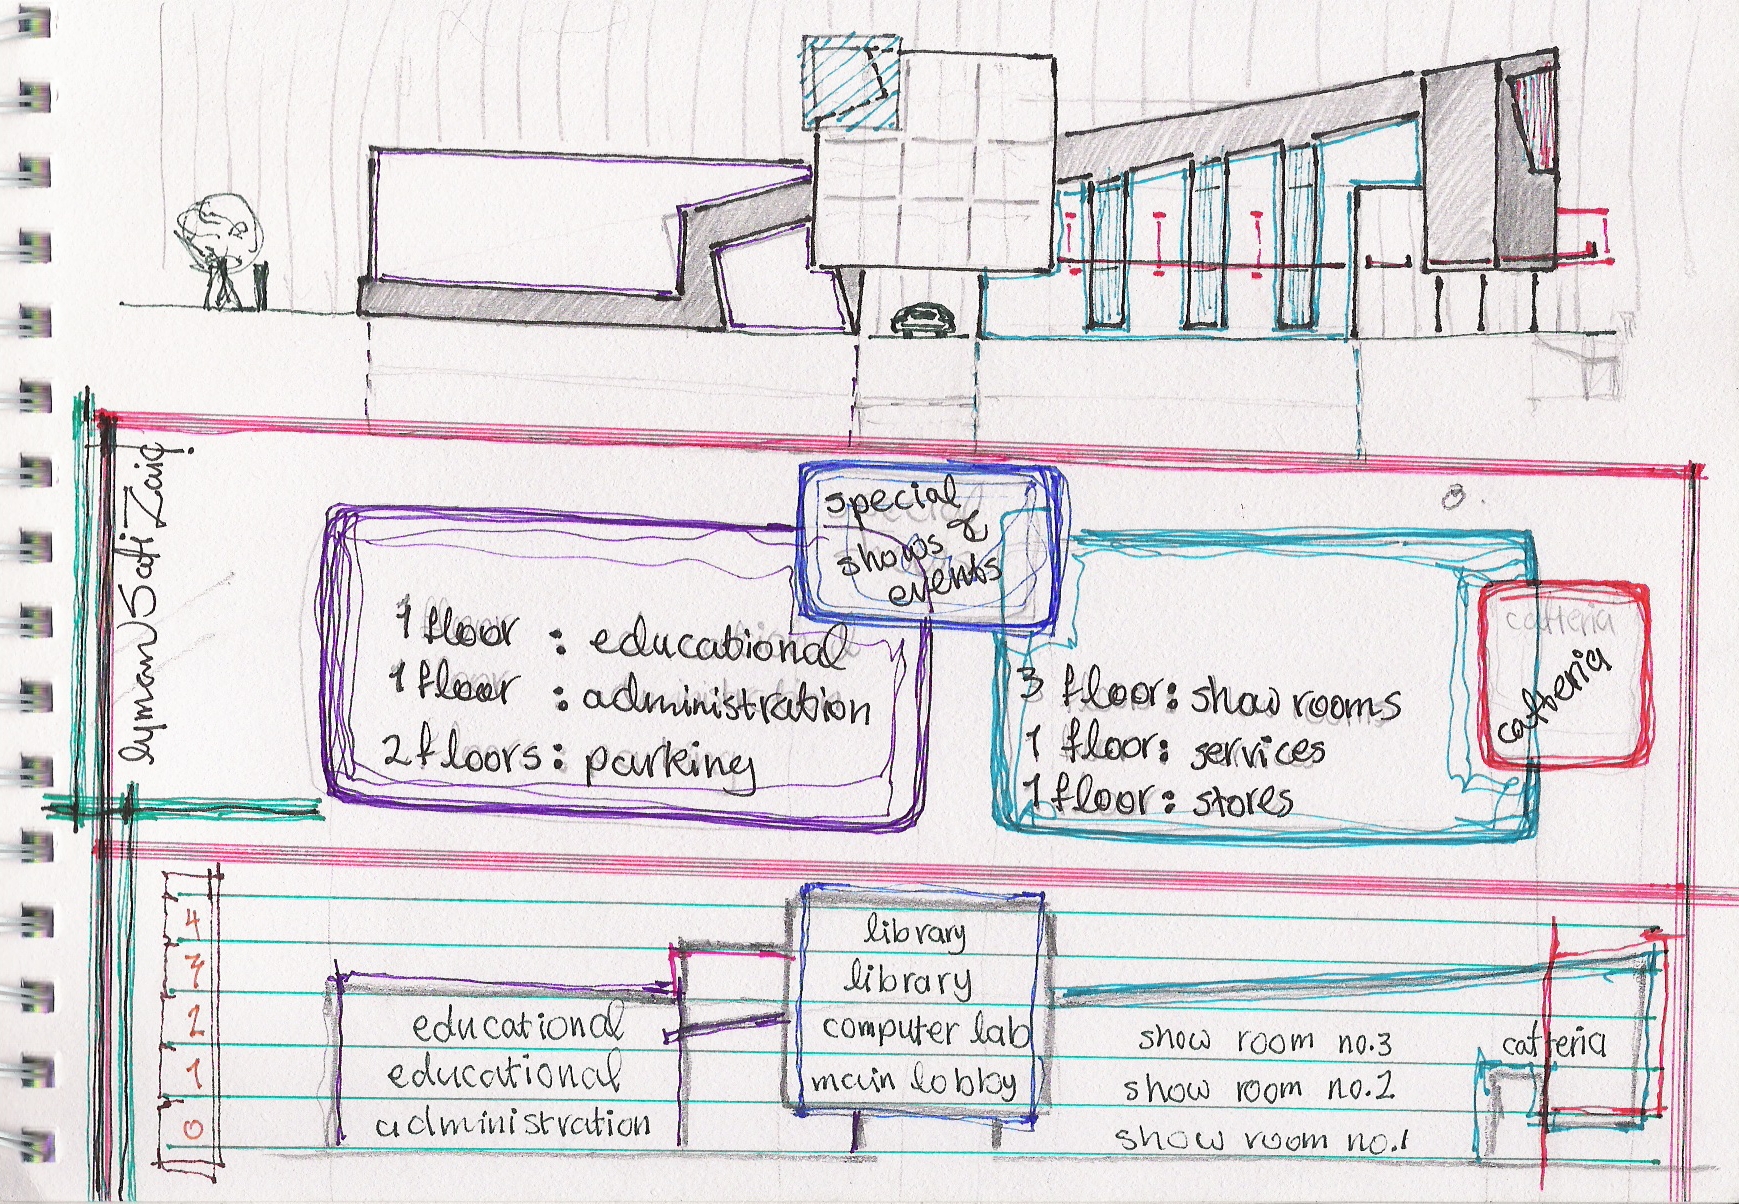 aymanN Sati Zaiq
special &
shows
events
1 floor : educational
1 floor : administration
2 floors : parking
3 floor: show rooms
1 floor: services
1 floor: stores
catteria
catteria
4
3
2
1
0
library
library
computer lab
main lobby
educational
educational
administration
show room no.3
show room no.2
show room no.1
catteria